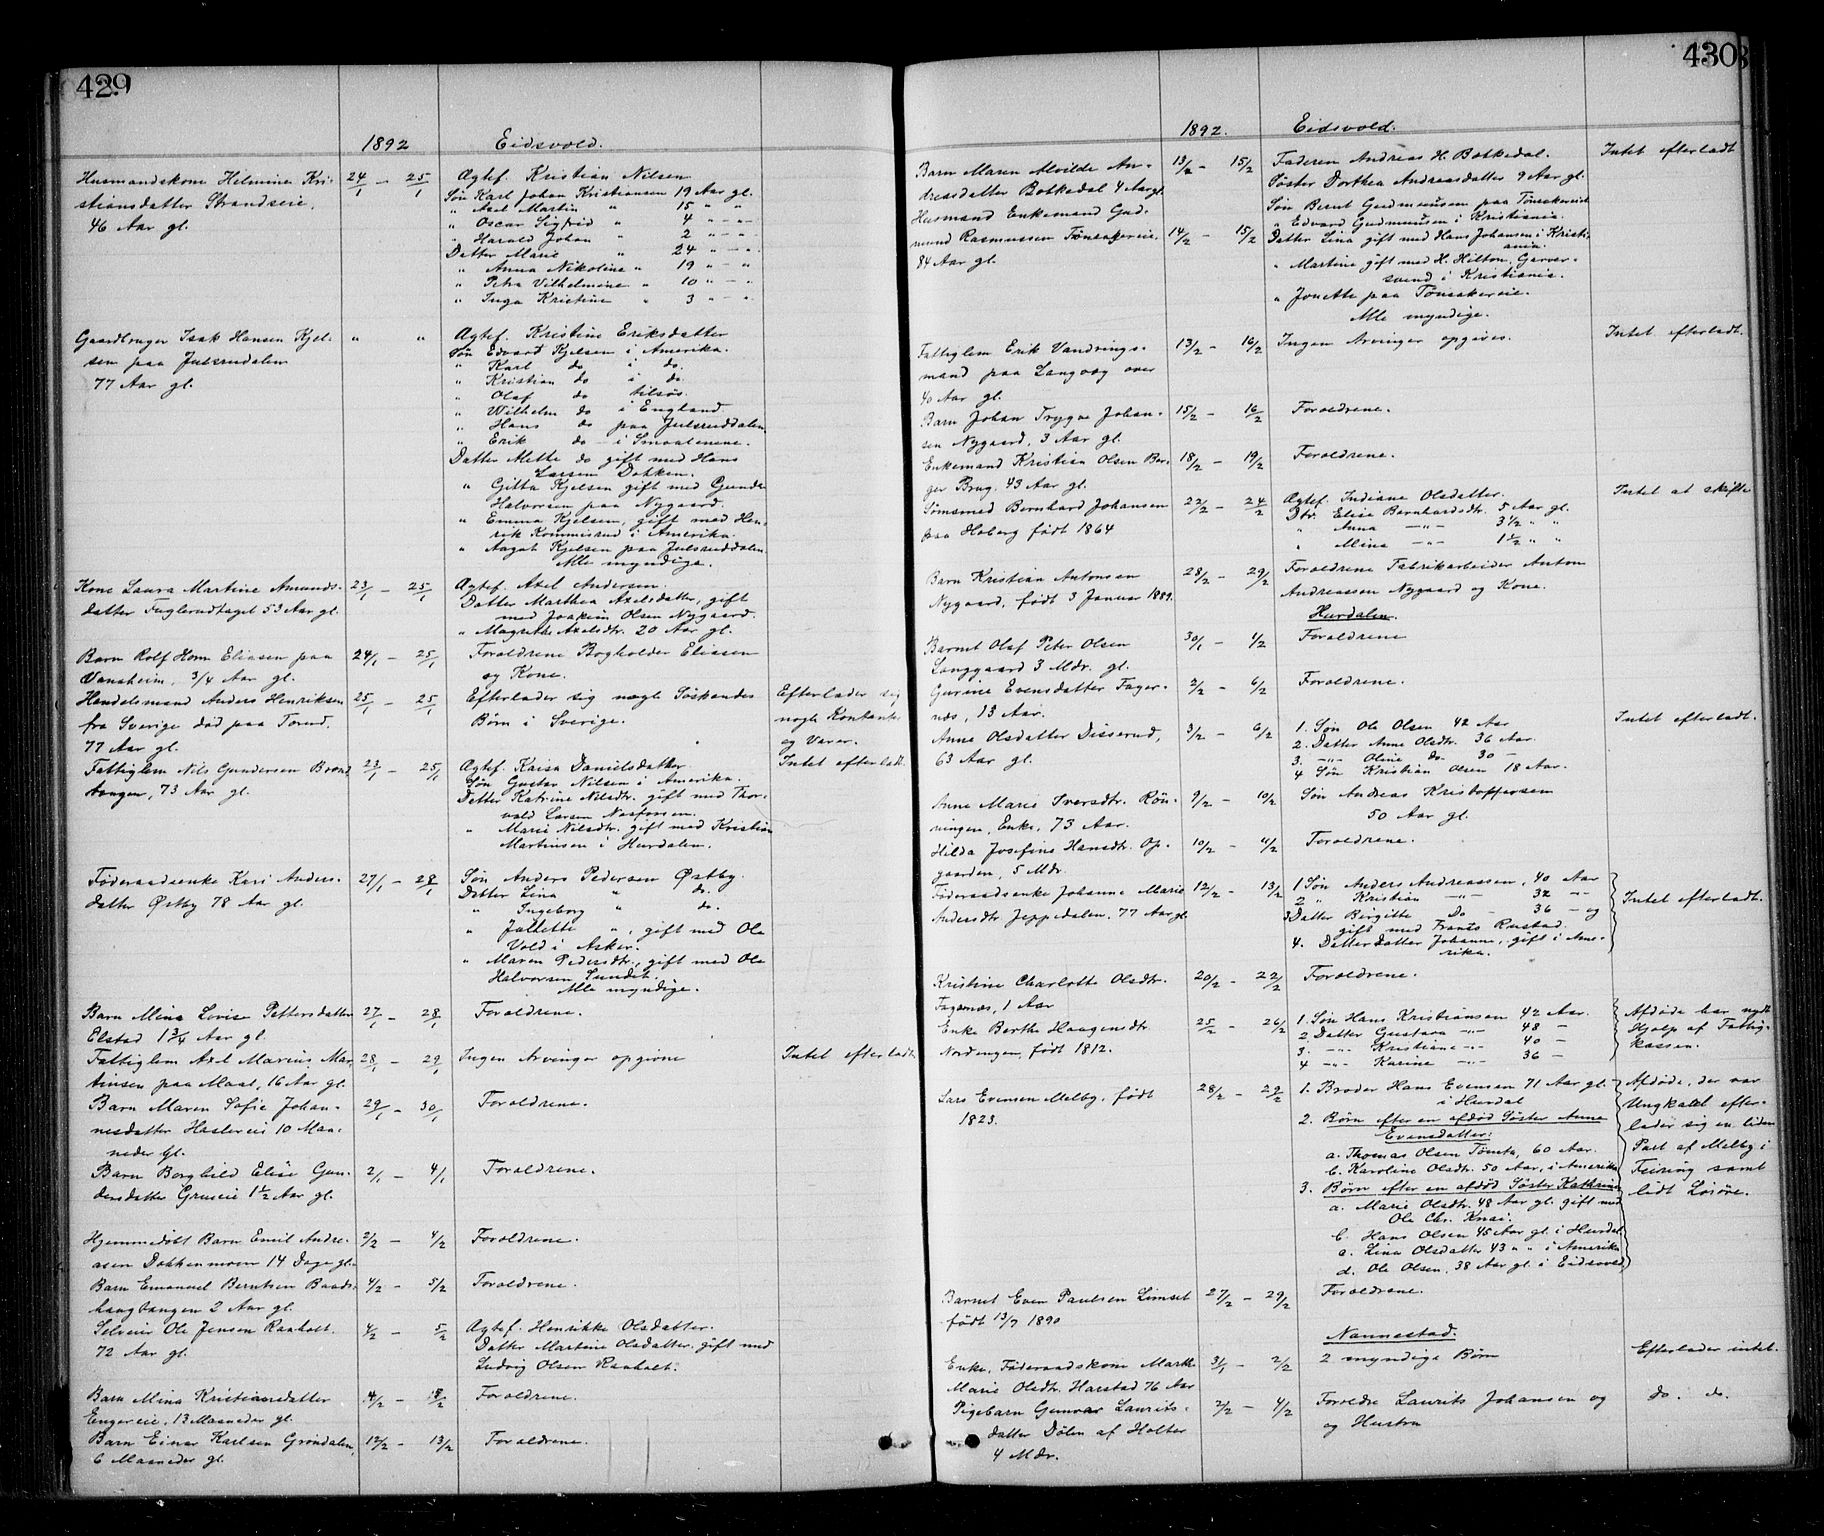 429
1892 Eidsvold.
Husmandskone Helmine Kri- 24/1 — 25/1 Ægtef. Kristian Nilsen
stiansdatter Strandseie, Søn Karl Johan Kristiansen 19 Aar gl.
46 Aar gl. " Axel Martin " 15 " "
" Oscar Sigfrid " 4 " - "
" Harald Johan " 2 " - "
Datter Marie " 24 " - "
" Anna Nikoline " 19 " - "
" Petra Vilhelmine " 10 " - "
" Inga Kristine " 3 " - "
Gaardbruger Isak Hansen Kjel- " " Ægtef. Kristine Eriksdatter
sen paa Julsruddalen Søn Edvard Kjelsen i Amerika.
77 Aar gl. " Karl do i do.
" Kristian do i do.
" Olaf do tilsøs.
" Wilhelm do i England
" Hans do paa Julsruddalen
" Erik do - i Smaalenene.
Datter Mette do gift med Hans
Larsen Dokken.
" Gitta Kjelsen gift med Gunde
Halvorsen paa Nygaard.
" Emma Kjelsen, gift med Hen-
rik Kommisrud i Amerika.
" Aagot Kjelsen paa Julsruddalen.
Alle myndige.
Kone Laura Martine Amunds- 23/1 — 25/1 Ægtef. Axel Andersen.
datter Fuglerudhaget 53 Aar gl. Datter Marthea Axelsdatter, gift
med Joakim Olsen Nygaard.
" Magrethe Axelsdtr. 20 Aar gl.
Barn Rolf Horn Eliasen paa 24/1 — 25/1 Forældrene Bogholder Eliasen
Vansheim, 3/4 Aar gl. og Kone.
Handelsmand Anders Henriksen 25/1 — 25/1 Efterlader sig nogle Søskendes Efterlader sig
fra Sverige død paa Torud, Børn i Sverige. nogle Kontanter
77 Aar gl. og Varer.
Fattiglem Nils Gundersen Brænd 23/1 — 25/1 Ægtef. Kaisa Danielsdatter Intet efterladt.
bangen, 73 Aar gl. Søn Gustav Nilsen i Amerika.
Datter Katrine Nilsdtr. gift med Thor-
vald Larsen Næsforsen.
" Marie Nilsdtr. gift med Kristian
Martinsen i Hurdalen.
Føderaadsenke Kari Anders- 27/1 — 28/1 Søn Anders Pedersen Østby.
datter Østby 78 Aar gl. Datter Lina " do.
" Ingeborg " do.
" Juliette ", gift med Ole
Vold i Asker.
" Maren Pedersdtr., gift med Ole
Halvorsen Sundet.
Alle myndige.
Barn Mina Lovise Pettersdatter 27/1 — 28/1 Forældrene.
Elstad 1 3/4 Aar gl.
Fattiglem Axel Marius Mar- 28/1 — 29/1 Ingen Arvinger opgivne Intet efterladt
tinsen paa Maal, 16 Aar gl.
Barn Maren Sofie Johan- 29/1 — 30/1 Forældrene.
nesdatter Haslereie 10 Maa-
neder gl.
Barn Borghild Elise Gun- 2/1 — 4/1 Forældrene.
dersdatter Grueeie 1 1/2 Aar gl.
Hjemmedøbt Barn Emil Andre- 2/2 — 4/2 Forældrene.
asen Dokkenmoen 14 Dage gl.
Barn Emanuel Berntsen Baads- 4/2 — 5/2 Forældrene.
haugbangen 2 Aar gl.
Selveier Ole Jensen Raaholt. 4/2 — 5/2 Ægtef. Henrikke Olsdatter.
72 Aar gl. Datter Martine Olsdatter, gift med
Ludvig Olsen Raaholt.
Barn Mina Kristiansdatter 4/2 — Forældrene.
Engereie, 13 Maaneder gl.
Barn Einar Karlsen Grøndalen, 12/2 — 13/2 Forældrene.
6 Maaneder gl.
430
1892. Eidsvold.
Barn Maren Alvilde An- 13/2 — 15/2 Faderen Andreas H. Botkedal. Intet efterladt
dreasdatter Botkedal 4 Aar gl. Søster Dorthea Andreasdatter 9 Aar gl.
Husmand Enkemand Gud- Søn Bernt Gudmunsen paa Tønsakereie
mund Rasmussen Tønsakereie, 14/2 — 15/2 " Edvard Gudmunsen i Kristiania.
84 Aar gl. Datter Lina gift med Hans Johansen i Kristi-
ania.
" Martine gift med H. Hilton, Garver-
svend i Kristiania.
" Jonette paa Tønsakereie.
Alle myndige.
Fattiglem Erik Vandrings- 13/2 — 16/2 Ingen Arvinger opgives. Intet efterladt.
mand paa Langvæg over
40 Aar gl.
Barn Johan Trygve Johan- 15/2 — 16/2 Forældrene.
sen Nygaard, 3 Aar gl.
Enkemand Kristian Olsen Ber- 18/2 — 19/2 Forældrene.
ger Brug. 43 Aar gl.
Tømsmed Bernhard Johansen 22/2 — 24/2 Ægtef. Indiane Olsdatter. Intet at skifte
paa Hoberg født 1864 Dtr. Elise Bernhardsdtr. 5 Aar gl.
" Anna —"— 3 1/2 " "
" Mina —"— 1 1/2 " "
Barn Kristian Antonsen 28/2 — 29/2 Forældrene Fabrikarbeider Anton
Nygaard, født 3 Januar 1889. Andreassen Nygaard og Kone.
Hurdalen.
Barnet Olaf Peter Olsen 30/1 — 1/2 Forældrene
Langgaard 3 Mdr. gl.
Gurine Evensdatter Fager- 2/2 — 6/2 Forældrene.
næs, 13 Aar.
Anne Olsdatter Disserud, 3/2 — 6/2 1. Søn Ole Olsen 42 Aar Intet efterladt.
63 Aar gl. 2. Datter Anne Olsdtr. 36 Aar.
3. —"— Oline do 30 —
4 Søn Kristian Olsen 18 Aar.
Anne Marie Iversdtr. Røn- 9/2 — 10/2 Søn Andreas Kristoffersen
ningen, Enke, 73 Aar. 50 Aar gl.
Hilda Josefine Hansdtr. Op- 10/2 — 11/2 Forældrene.
gaarden, 5 Mdr.
Føderaadsenke Johanne Marie 12/2 — 13/2 1 Søn Anders Andreassen, 40 Aar Intet efterladt.
Andersdtr Jeppedalen, 77 Aar gl. 2 " Kristian —"— 32 —"—
3 Datter Birgitte Do — 36 — og
gift med Frants Rustad.
4. Datter Datter Johanne, gift i Ame-
rika.
Kristine Charlotte Olsdtr. 20/2 — 22/2 Forældrene.
Fagernæs, 1 Aar
Enke Berthe Haagensdtr. 25/2 — 26/2 1. Søn Hans Kristiansen 42 Aar. Afdøde har nydt
Nordengen, født 1812. 2. Datter Gustava —"— 48 — Hjælp af Fattig-
3. —"— Kristiane —"— 40 — kassen.
4 —"— Karine —"— 36 —
Lars Evensen Melby, født 28/2 — 29/2 1. Broder Hans Evensen 71 Aar gl. Afdøde, der var
1823. i Hurdal Ungkarl efter-
2. Børn efter en afdød Søster Anne lader sig en liden
Evensdatter: Part af Melby i
a. Thomas Olsen Tømta, 60 Aar. Feiring samt
b. Karoline Olsdtr. 50 Aar, i Amerika lidt Løsøre.
3. Børn efter en afdød Søster Kathrine
a. Marie Olsdtr. 48 Aar gl. gift med
Ole Chr. Knai.
b. Hans Olsen 45 Aar gl. i Hurdal
c. Lina Olsdatter 43 " " i Amerika
d. Ole Olsen, 38 Aar gl. i Eidsvold
Barnet Even Paulsen Limset 27/2 — 29/2 Forældrene.
født 13/7 1890
Nannestad.
Enke, Føderaadskone Marthe 31/1 — 2/2 2 myndige Børn Efterlader intet.
Marie Olsdtr. Harstad 76 Aar
Pigebarn Gunvor Laurits- 2/2 — 4/2 Forældre Laurits Johansen og do. do.
datter Dølen af Holter og Hustru
4 Mdr.